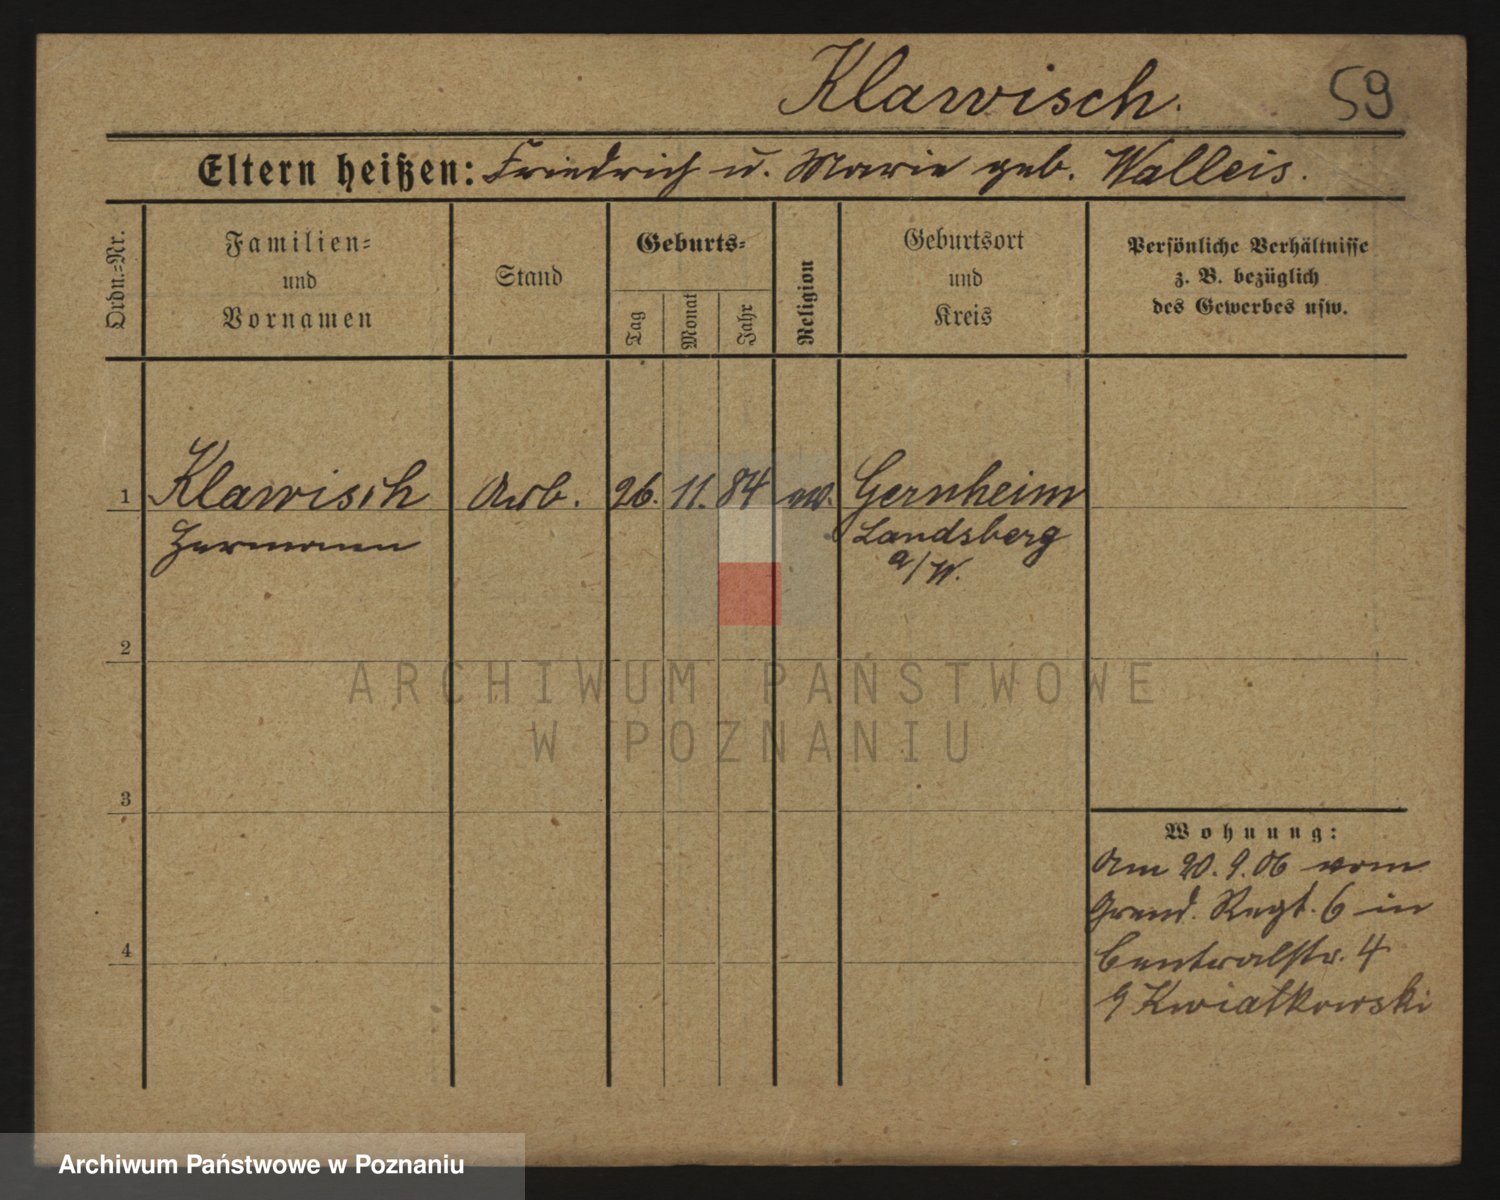 Klawisch.
59
Eltern heißen: Friedrich u. Marie geb. Walleis.
Ordn.=Nr.
Familien=
und
Vornamen
Stand
Geburts=
Tag
Monat
Jahr
Religion
Geburtsort
und
Kreis
Persönliche Verhältnisse
z. B. bezüglich
des Gewerbes usw.
1 Klawisch Arb. 26. 11. 84 ev. Gernheim
Hermann Landsberg
a/W.
2
ARCHIWUM PAŃSTWOWE
W POZNANIU
3
Wohnung:
Am 20. 9. 06 vom
Grend. Regt. 6 in
4 Centralstr. 4
Kwiatkowski
Archiwum Państwowe w Poznaniu